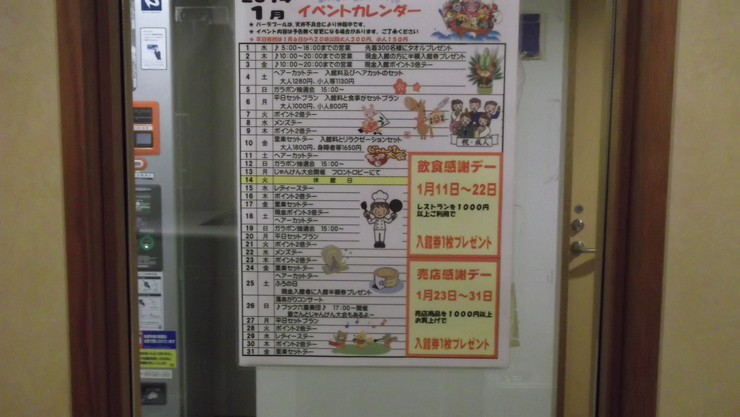 1月
イベントカレンダー
★ イベント内容は予告無く変更になる場合があります、ご了承ください
1 水 ♪5:00~18:00までの営業 先着300名様にタオルプレゼント
2 木 ♪10:00~20:00までの営業 現金入館の方に半額入館券プレゼント
3 金 ♪10:00~20:00までの営業 現金入館ポイント3倍デー
4 土 ヘアーカットデー 入館料及びヘアカットのセット
大人1280円、小人等1130円
5 日 ガラポン抽選会 15:00~
6 月 平日セットプラン 入館料と食事がセットプラン
大人1000円、小人800円
7 火 ポイント2倍デー
8 水 メンズデー
9 木 ポイント2倍デー
10 金 里楽セットデー 入館料とリラクゼーションセット
大人1800円、身障者等1650円
11 土 ヘアーカットデー
12 日 ガラポン抽選会 15:00~
13 月 じゃんけん大会開催 フロントロビーにて
14 火 休館日
15 水 レディースデー
16 木 ポイント2倍デー
17 金 里楽セットデー
18 土 現金ポイント3倍デー
ヘアーカットデー
19 日 ガラポン抽選会 15:00~
20 月 平日セットプラン
21 火 ポイント2倍デー
22 水 メンズデー
23 木 ポイント2倍デー
24 金 里楽セットデー
25 土 ヘアーカットデー
ふろの日
現金入館者に入館半額券プレゼント
26 日 湯あがりコンサート
♪ブック六重奏団♪ 17:00~開催
皆さんとじゃんけん大会もあるよ~
27 月 平日セットプラン
28 火 ポイント2倍デー
29 水 レディースデー
30 木 ポイント2倍デー
31 金 里楽セットデー
祝・成人
飲食感謝デー
1月11日~22日
レストランを1000円
以上ご利用で
入館券1枚プレゼント
売店感謝デー
1月23日~31日
売店商品を1000円以上
お買上げで
入館券1枚プレゼント